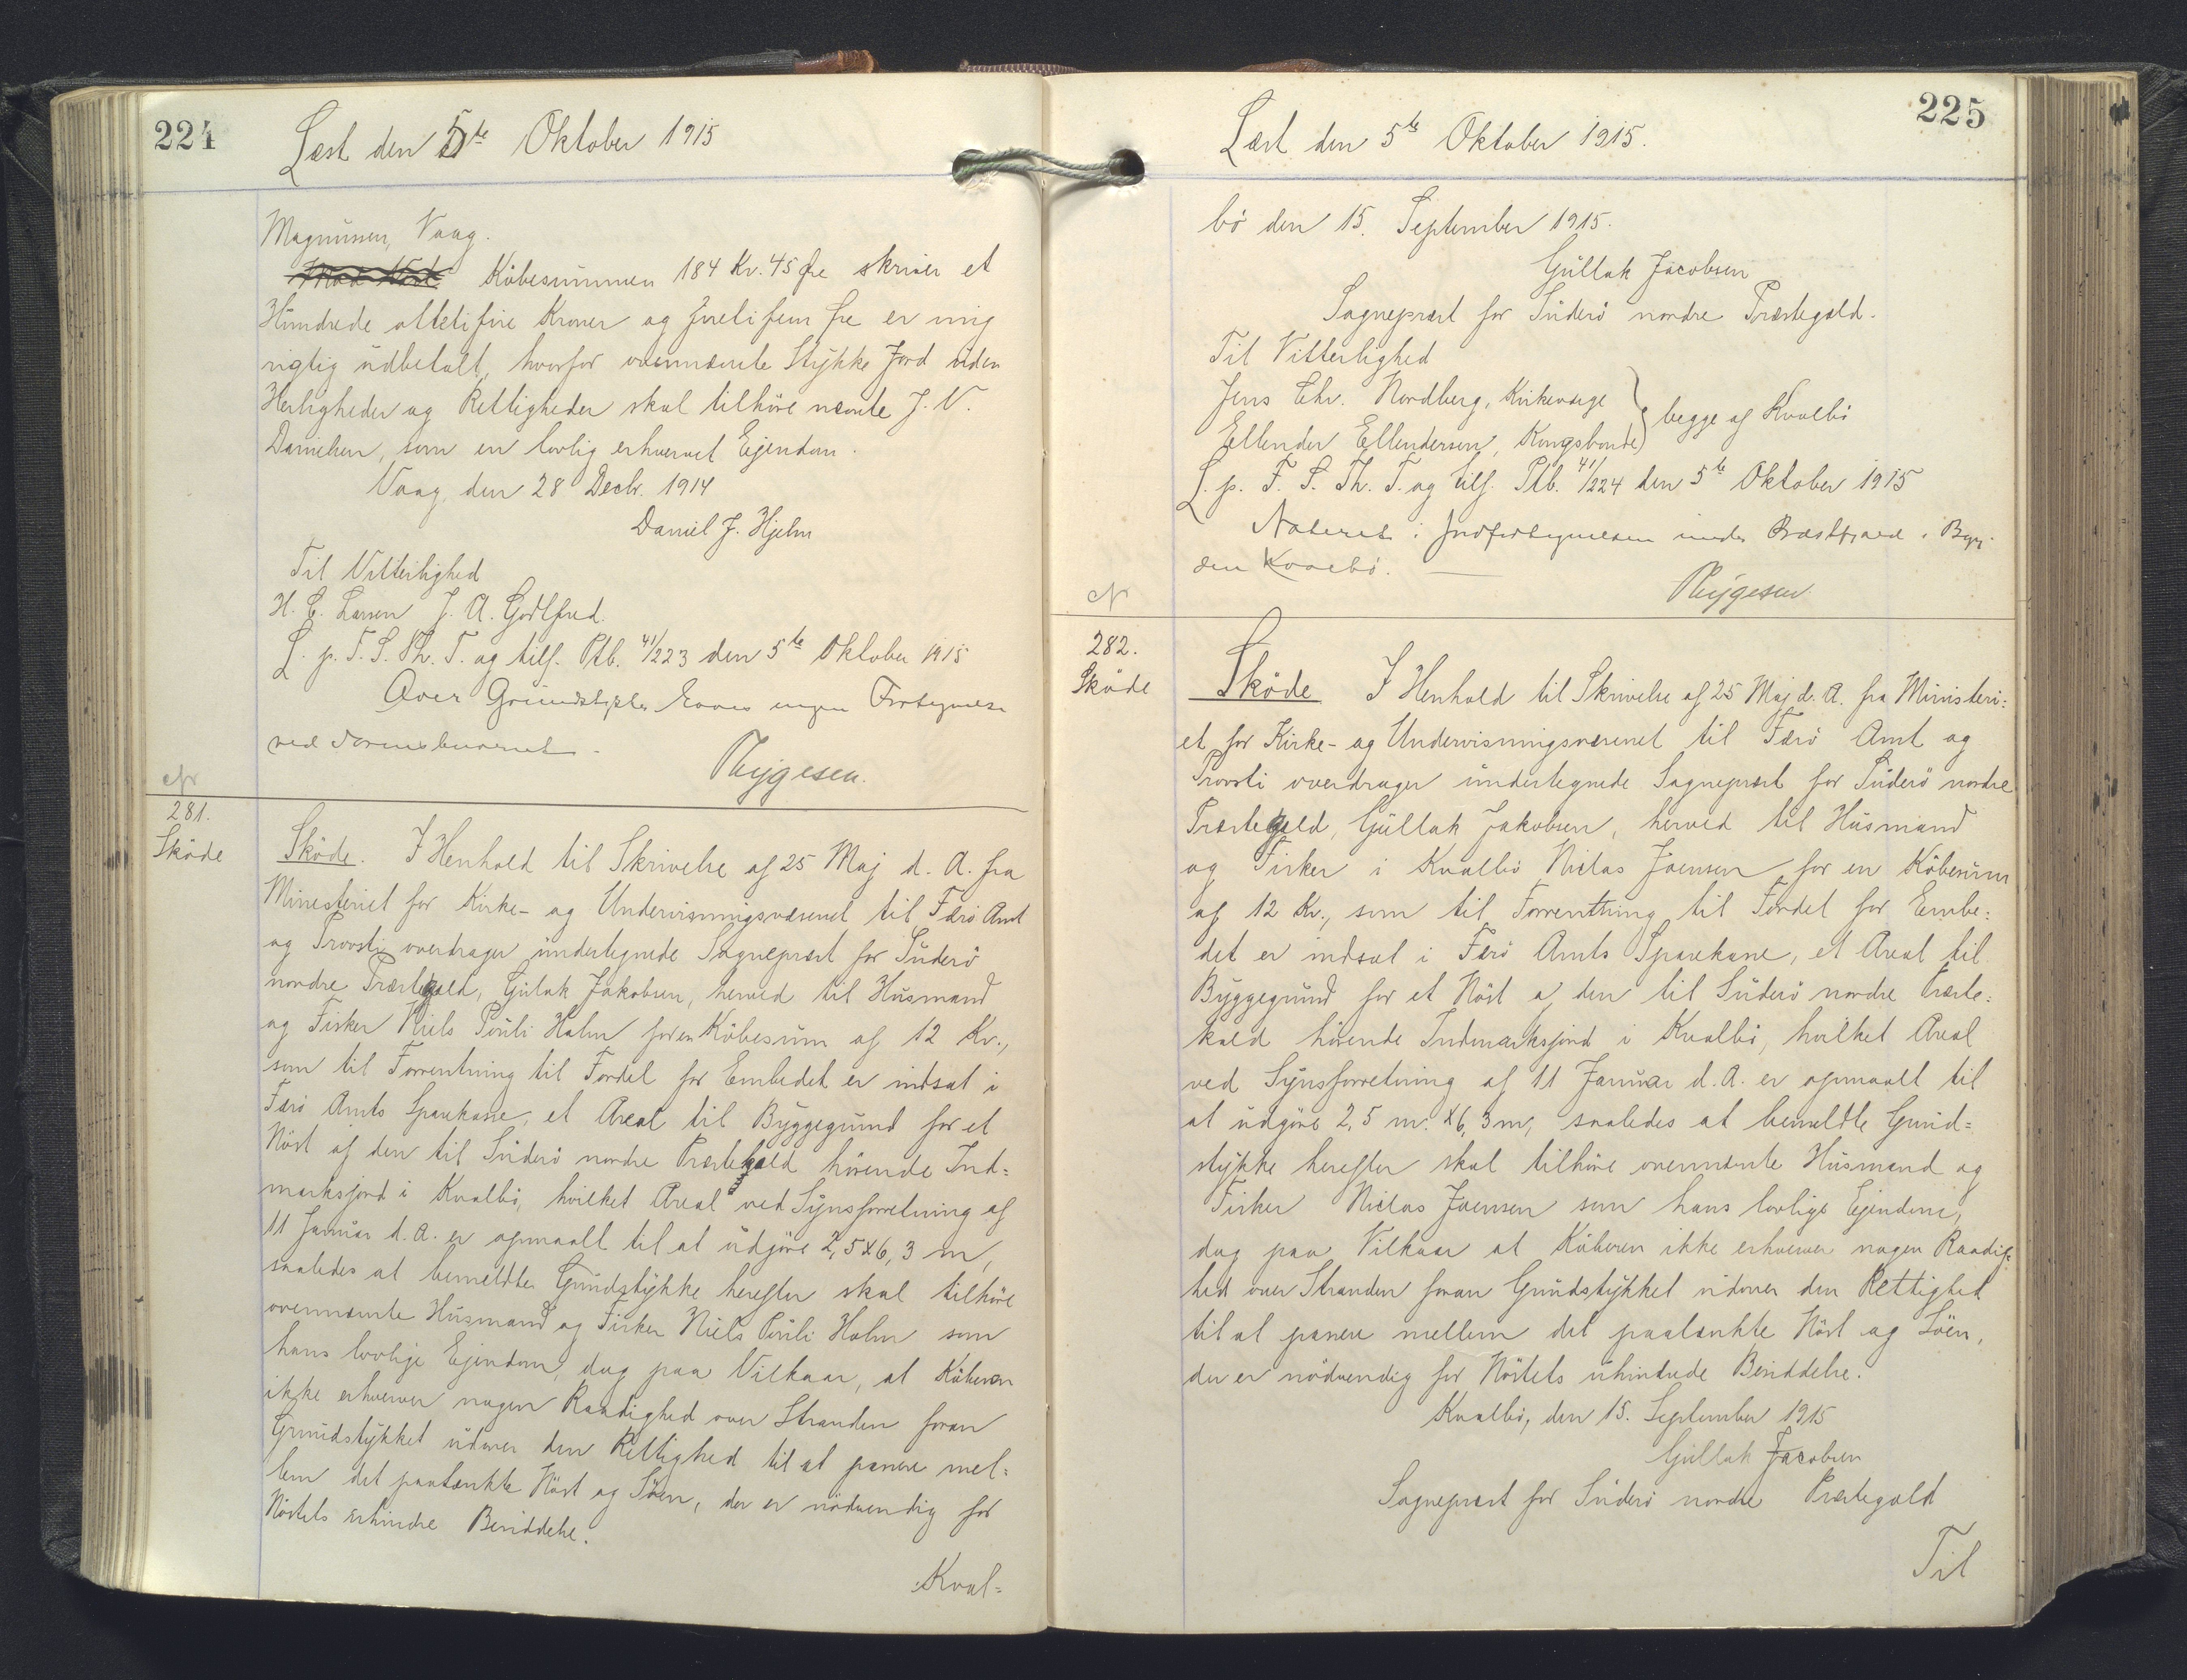 224
Læst den 5te Oktober 1915
Magnussen, Vaag.
Köbesummen 184 Kr. 45 Øre skriver et
Hundrede ottetifire Kroner og firetifem Øre er mig
rigtig udbetalt, hvorfor ovennævnte Stykke Jord uden
Herligheder og Rettigheder skal tilhöre nævnte J. V.
Danielsen, som en lovlig erhvervet Ejendom.
Vaag, den 28 Decbr. 1914
Daniel J. Hjelm
Til Vitterlighed
H. C. Larsen J. A. Godtfred.
L. p. F. S. Th. T. og tilf. Ptb. 41/223 den 5te Oktober 1915
Over Grundstykket haves ingen Fortegnelse
ved Sorenskriveriet.
Rygesen.
№
281.
Sköde
Sköde. I Henhold til Skrivelse af 25 Maj d. A. fra
Ministeriet for Kirke- og Undervisningsvæsenet til Færö Amt
og Provsti overdrager undertegnede Sognepræst for Suderö
nordre Præstegæld, Gullak Jakobsen, herved til Husmand
og Fisker Niels Pouli Holm for en Köbesum af 12 Kr.,
som til Forrentning til Fordel for Embedet er indsat i
Færö Amts Sparekasse, et Areal til Byggegrund for et
Nöst af den til Suderö nordre Præstekald hörende Ind=
marksjord i Kvalbö, hvilket Areal ved Synsforretning af
11 Januar d. A. er opmaalt til at udgöre 2,5 × 6,3 m,
saaledes at bemeldte Grundstykke herefter skal tilhöre
ovennævnte Husmand og Fisker Niels Pouli Holm som
hans lovlige Ejendom, dog paa Vilkaar, at Köberen
ikke erhverver nogen Raadighed over Stranden foran
Grundstykket udover den Rettighed til at passere mel=
lem det paatænkte Nöst og Söen, der er nödvendig for
Nöstets uhindre Benyddelse.
Kval=
225
Læst den 5te Oktober 1915.
bö den 15. September 1915.
Gullak Jacobsen
Sognepræst for Suderö nordre Præstegæld.
Til Vitterlighed
Jens Chr. Nordberg, Kirkeværge
Ellender Ellendersen, Kongsbonde } begge af Kvalbö
L. p. F. S. Th. T. og tilf. Ptb. 41/224 den 5te Oktober 1915
Noteret i Jordfortegnelsen under Præstejord i Byg=
den Kvalbö.
Rygesen.
№
282.
Sköde
Sköde I Henhold til Skrivelse af 25 Maj d. A. fra Ministeri=
et for Kirke- og Undervisningsvæsenet til Færö Amt og
Provsti overdrager undertegnede Sognepræst for Suderö nordre
Præstegæld, Gullak Jakobsen, herved til Husmand
og Fisker i Kvalbö Niclas Joensen for en Köbesum
af 12 Kr., som til Forrentning til Fordel for Embe=
det er indsat i Færö Amts Sparekasse, et Areal til
Byggegrund for et Nöst a den til Suderö nordre Præste=
kald hörende Indmarksjord i Kvalbö, hvilket Areal
ved Synsforretning af 11 Januar d. A. er opmaalt til
at udgöre 2,5 m. × 6,3 m, saaledes at bemeldte Grund=
stykke herefter skal tilhöre ovennævnte Husmand og
Fisker Niclas Joensen som hans lovlige Ejendom,
dog paa Vilkaar at Köberen ikke erhverver nogen Raadig=
hed over Stranden foran Grundstykket udover den Rettighed
til at passere mellem det paatænkte Nöst og Söen,
der er nödvendig for Nöstets uhindrede Benyddelse.
Kvalbö, den 15. September 1915
Gullak Jacobsen
Sognepræst for Suderö nordre Præstegæld
Til